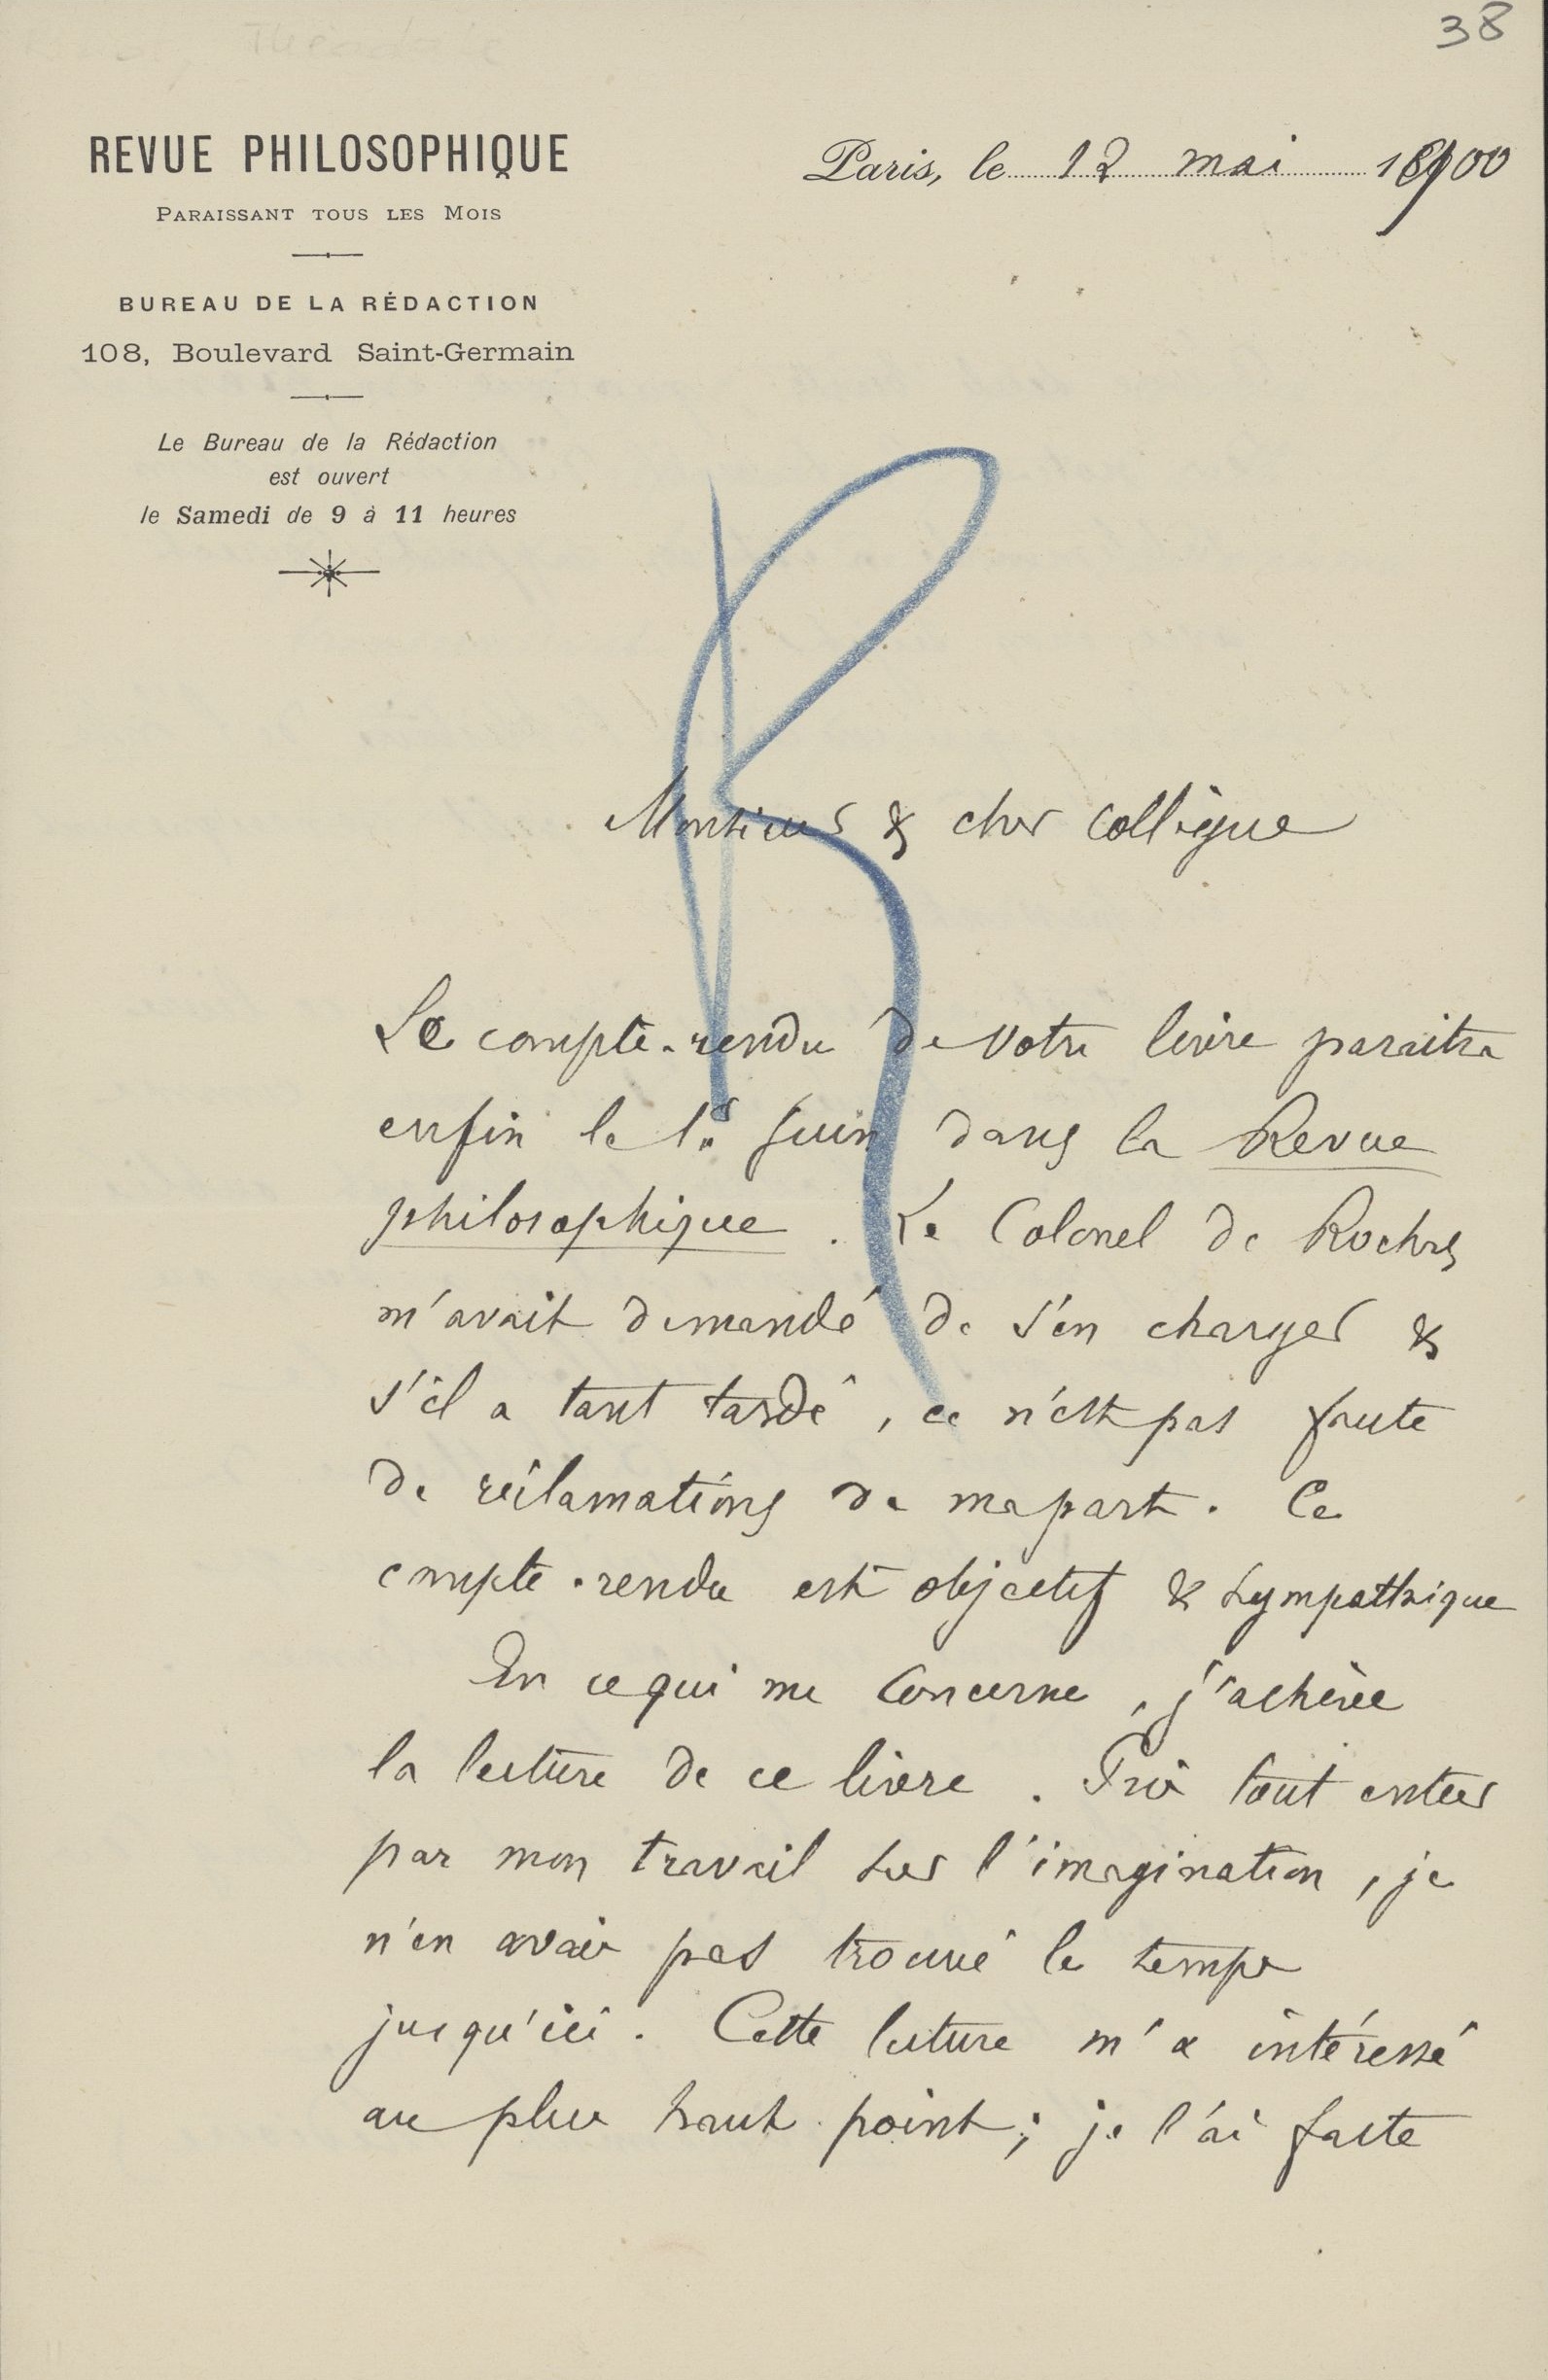 38
REVUE PHILOSOPHIQUE
PARAISSANT TOUS LES MOIS
BUREAU DE LA RÉDACTION
108, Boulevard Saint-Germain
Le Bureau de la Rédaction
est ouvert
le Samedi de 9 à 11 heures
Paris, le 12 mai 1900
R
Monsieur & cher collègue
Le compte-rendu de votre livre paraitra
enfin le 1er Juin dans la Revue
philosophique. Le Colonel de Rochas
m'avait demandé de s'en charger &
s'il a tant tardé, ce n'est pas faute
de réclamations de ma part. Ce
compte-rendu est objectif & sympathique
En ce qui me concerne, j'achève
la lecture de ce livre. Pris tout entier
par mon travail sur l'imagination, je
n'en avais pas trouvé le temps
jusqu'ici. Cette lecture m'a intéressé
au plus haut point; je l'ai faite